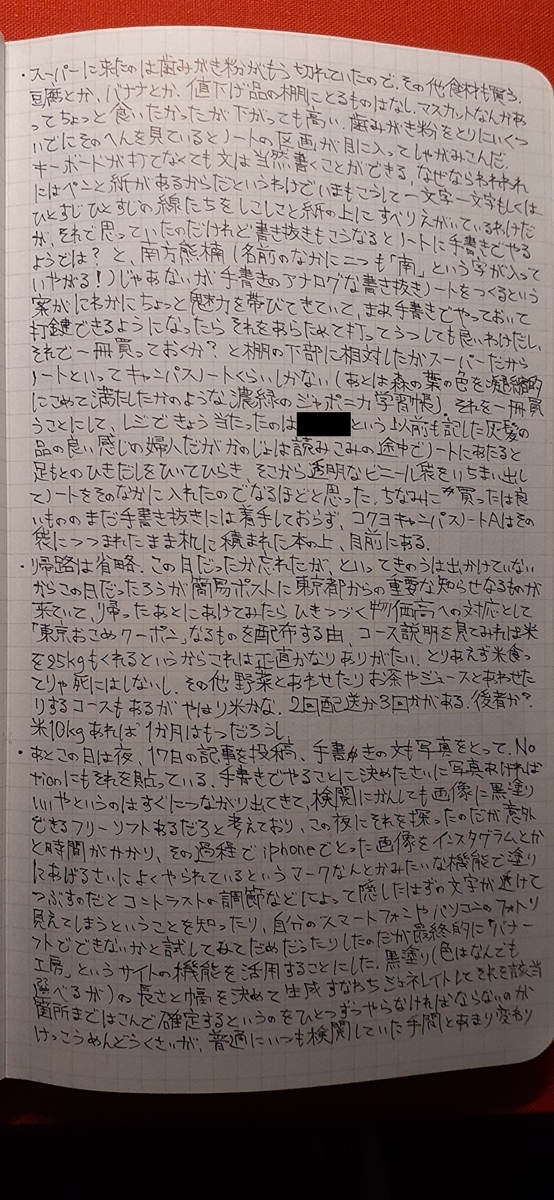 ・スーパーに来たのは歯みがき粉がもう切れていたので。その他食材も買う。
豆腐とか、バナナとか。値下げ品の棚にとるものはなし。マスカットなんかあ
ってちょっと食いたかったが下がっても高い。歯みがき粉をとりにいくつ
いでにそのへんを見ているとノートの区画が目に入ってしゃがみこんだ。
キーボードが打てなくても文は当然書くことができる、なぜならわれわれ
にはペンと紙があるからだというわけでいまもこうして一文字一文字もしくは
ひとすじひとすじの線たちをしこしこと紙の上にすべりえがいているわけだ
が、それで思っていたのだけれど書き抜きもこうなるとノートに手書きでやる
ようでは？と、南方熊楠(名前のなかに二つも「南」という字が入って
いやがる！)じゃあないが手書きのアナログな書き抜きノートをつくるという
案がにわかにちょっと魅力を帯びてきていて、まあ手書きでやっておいて
打鍵できるようになったらそれをあらためて打ってうつしても良いわけだし、
それで一冊買っておくか？と棚の下部に相対したがスーパーだから
ノートといってキャンパスノートくらいしかない(あとは森の葉の色を凝縮的
にこめて満たしたかのような濃緑のジャポニカ学習帳)。それを一冊買
うことにして、レジできょう当たったのはという以前も記した灰髪の
品の良い感じの婦人だがかのじょは読みこみの途中でノートにあたると
足もとのひきだしをひいてひらき、そこから透明なビニール袋をいちまい出し
てノートをそのなかに入れたのでなるほどと思った。ちなみに買ったは良
いもののまだ手書き抜きには着手しておらず、コクヨキャンパスノートAはその
袋につつまれたまま机に積まれた本の上、目前にある。
・帰路は省略。この日だったか忘れたが、といってきのうは出かけていない
からこの日だったろうが簡易ポストに東京都からの重要な知らせなるものが
来ていて、帰ったあとにあけてみたらひきつづく物価高への対応として
「東京おこめクーポン」なるものを配布する由、コース説明を見てみれば米
を25kgもくれるというからこれは正直かなりありがたい。とりあえず米食っ
てりゃ死にはしないし。その他野菜とあわせたりお茶やジュースとあわせた
りするコースもあるがやはり米かな。2回配送か3回かがある。後者か？
米10kgあれば1か月はもつだろうし。
・あとこの日は夜、17日の記事を投稿、手書きの文も写真をとって。No
tionにもそれを貼っている。手書きでやることに決めたさいに写真あければ
いいやというのはすぐにつながり出てきて、検閲にかんしても画像に黒塗り
できるフリーソフトあるだろと考えており、この夜にそれを探ったのだが意外
と時間がかかり、その過程でiphoneでとった画像をインスタグラムとか
にあげるさいによくやられているというマークなんとかみたいな機能で塗り
つぶすのだとコントラストの調節などによって隠したはずの文字が透けて
見えてしまうということを知ったり、自分のスマートフォンやパソコンのフォトソ
フトでできないかと試してみてだめだったりしたのだが最終的に「バナー
工房」というサイトの機能を活用することにした。黒塗り(色はなんでも
選べるが)の長さと幅を決めて生成すなわちジェネレイトしてそれを該当
箇所まではこんで確定するというのをひとつずつやらなければならないのが
けっこうめんどうくさいが、普通にいつも検閲していた手間とあまり変わり